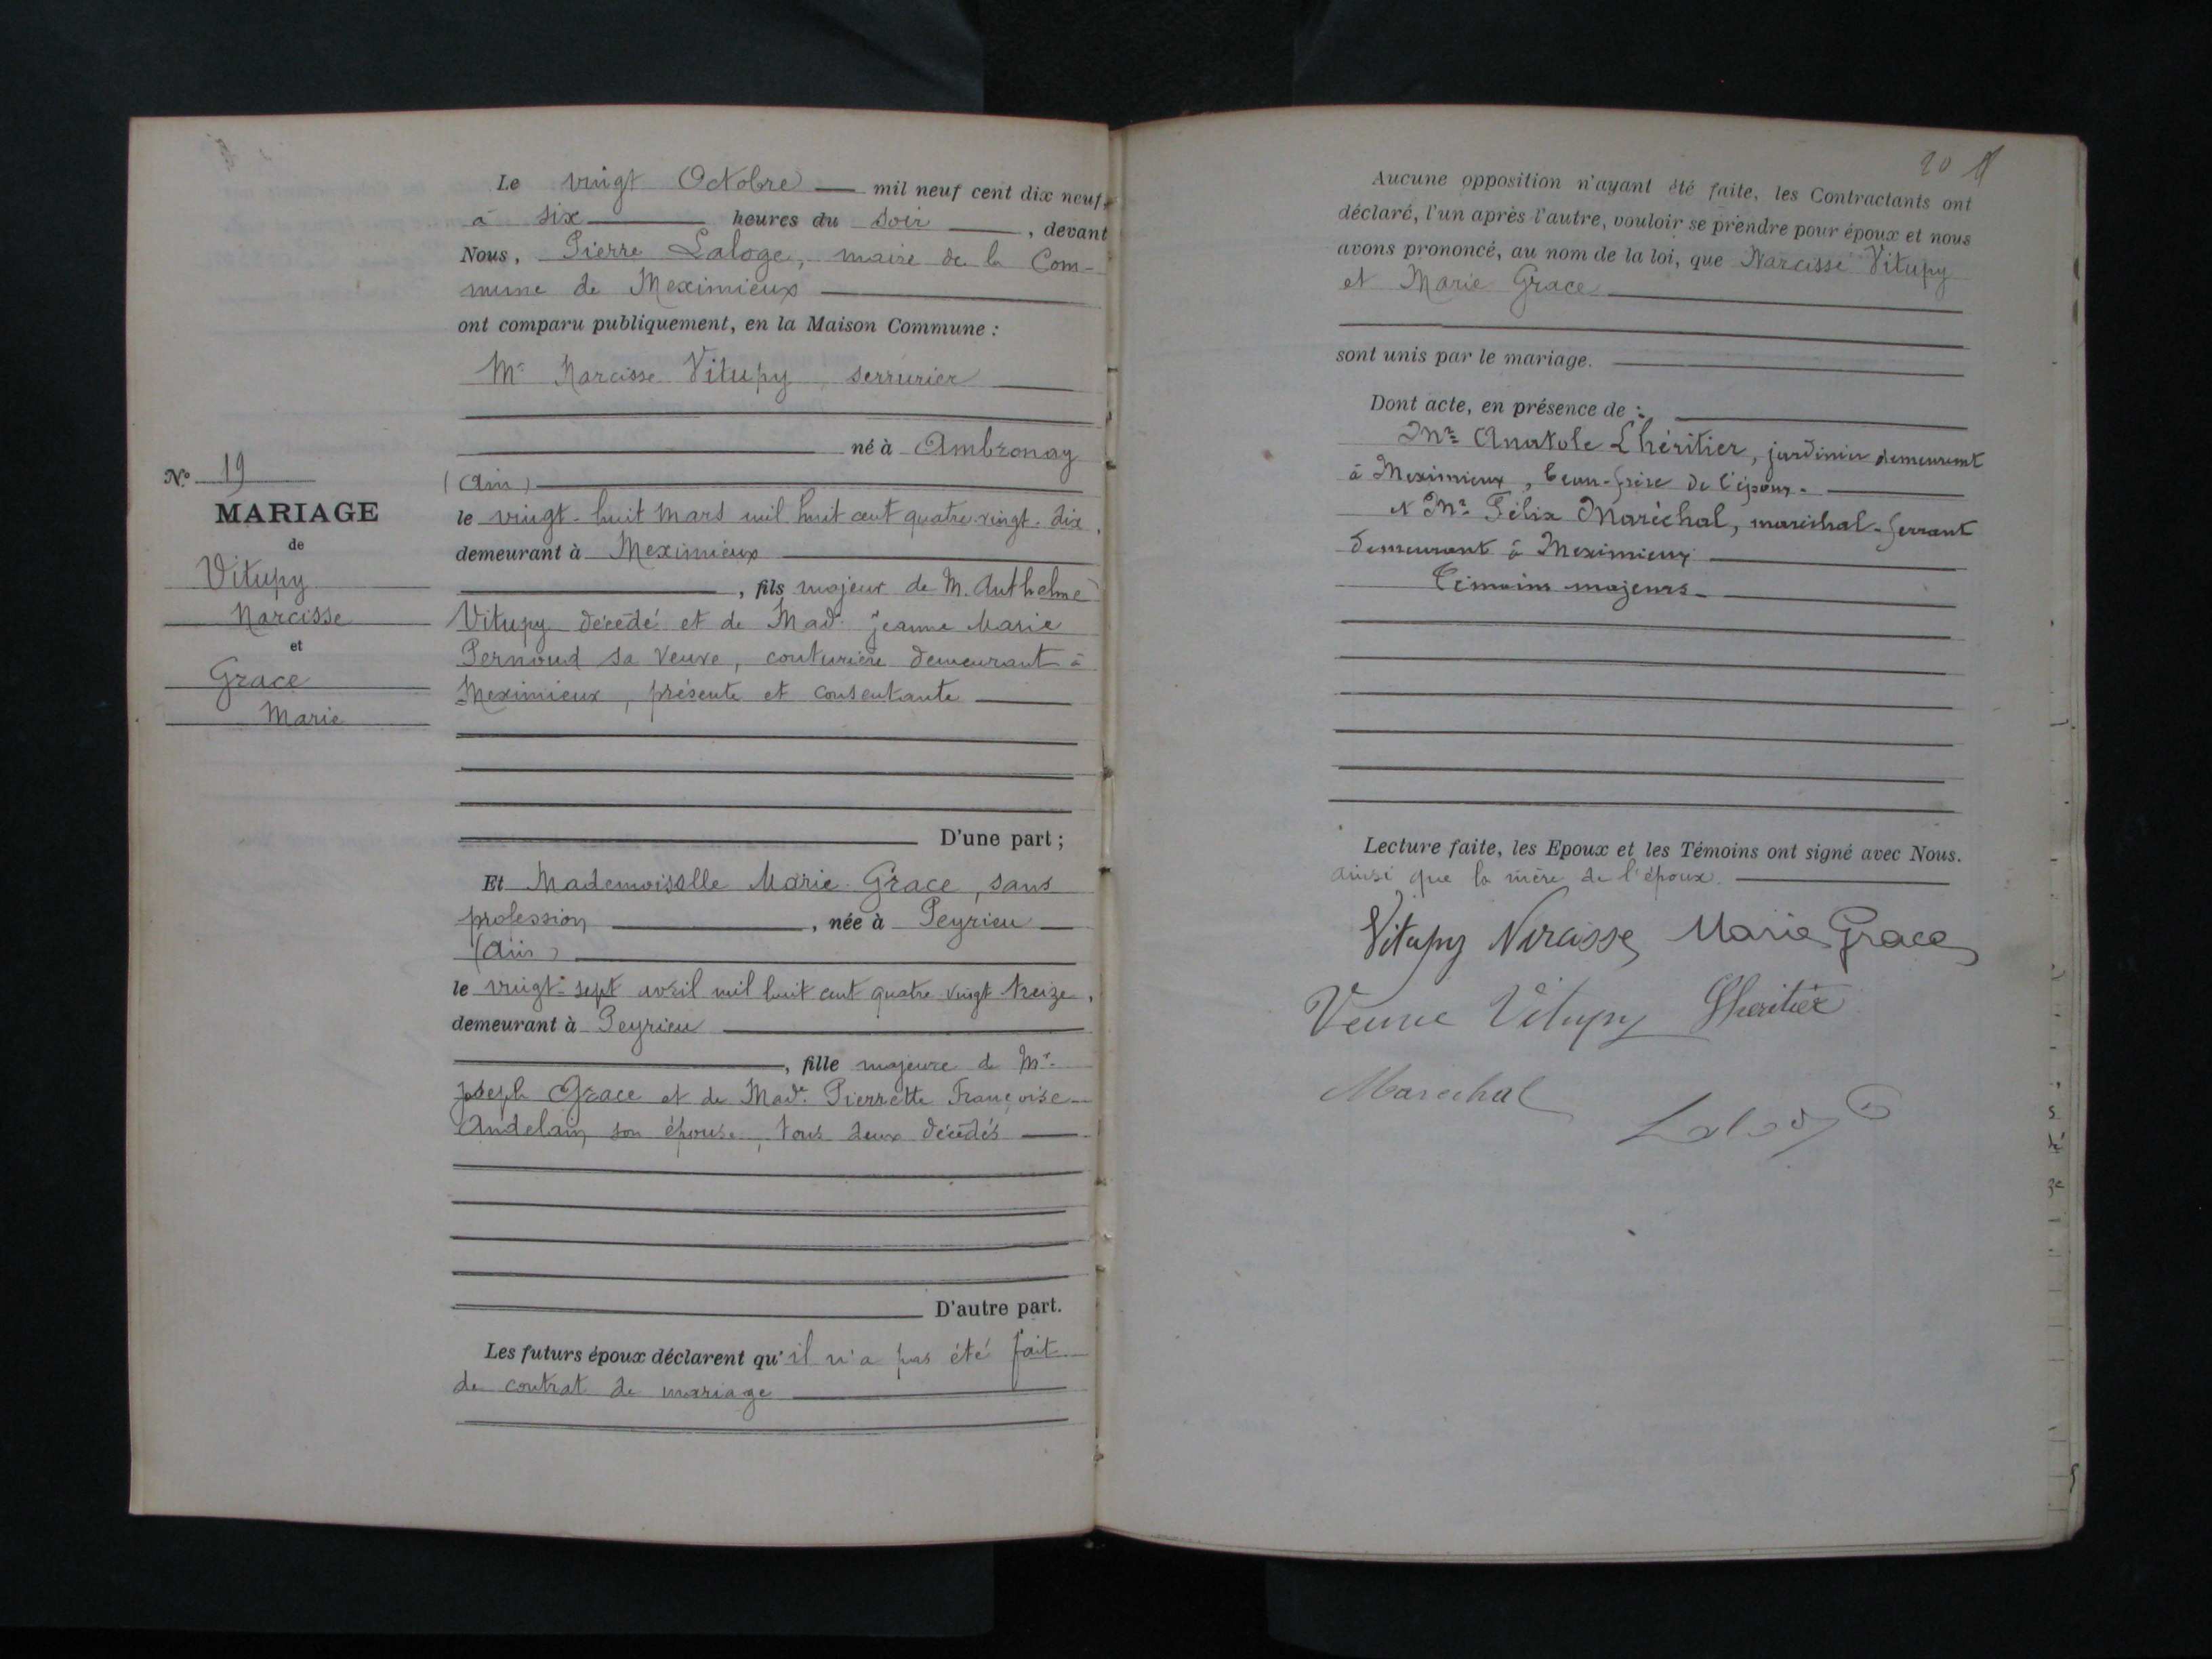 Le vingt Octobre mil neuf cent dix neuf
à six heures du soir, devant
Nous, Pierre Laloge, maire de la Com-
mune de Meximieux
ont comparu publiquement, en la Maison Commune :
Mr Narcisse Vitupy serrurier
né à Ambronay
(Ain)
le vingt-huit Mars mil huit cent quatre-vingt-dix,
demeurant à Meximieux
, fils majeur de M. Anthelme
Vitupy décédé et de Made Jeanne Marie
Pernoud sa veuve, couturière demeurant à
Meximieux, présente et consentante
D'une part ;
N° 19
MARIAGE
de
Vitupy
Narcisse
et
Grace
Marie
Et Mademoiselle Marie Grace, sans
profession, née à Peyrieu
(Ain)
le vingt-sept avril mil huit cent quatre vingt treize,
demeurant à Peyrieu
, fille majeure de Mr
Joseph Grace et de Made Pierrette Françoise
Andelain son épouse, tous deux décédés
D'autre part.
Les futurs époux déclarent qu'il n'a pas été fait
de contrat de mariage
20
Aucune opposition n'ayant été faite, les Contractants ont
déclaré, l'un après l'autre, vouloir se prendre pour époux et nous
avons prononcé, au nom de la loi, que Narcisse Vitupy
et Marie Grace
sont unis par le mariage.
Dont acte, en présence de :
Mr Anatole Lhéritier, jardinier demeurant
à Meximieux, beau-frère de l'époux.
et Mr Félix Maréchal, maréchal-ferrant
demeurant à Meximieux
Témoins majeurs
Lecture faite, les Epoux et les Témoins ont signé avec Nous.
ainsi que la mère de l'époux.
Vitupy Narcisse Marie Grace
Veuve Vitupy Lheritier
Marechal
Laloge